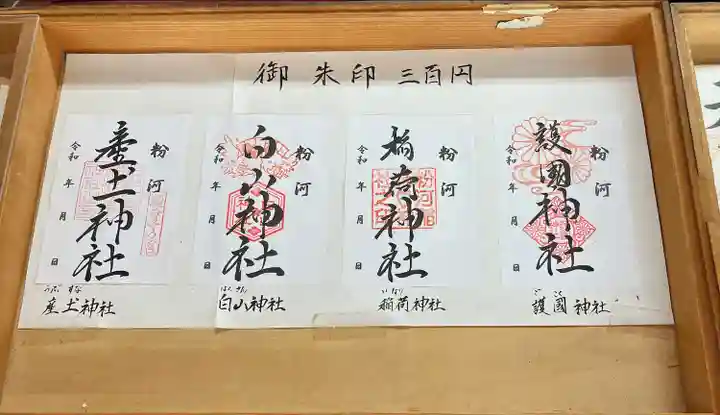 御朱印 三百円
粉河
産土神社
令和 年 月 日
粉河
白山神社
令和 年 月 日
粉河
稲荷神社
令和 年 月 日
粉河
護國神社
令和 年 月 日
うぶ すな
産土神社
はくさん
白山神社
いなり
稲荷神社
ごこく
護國神社